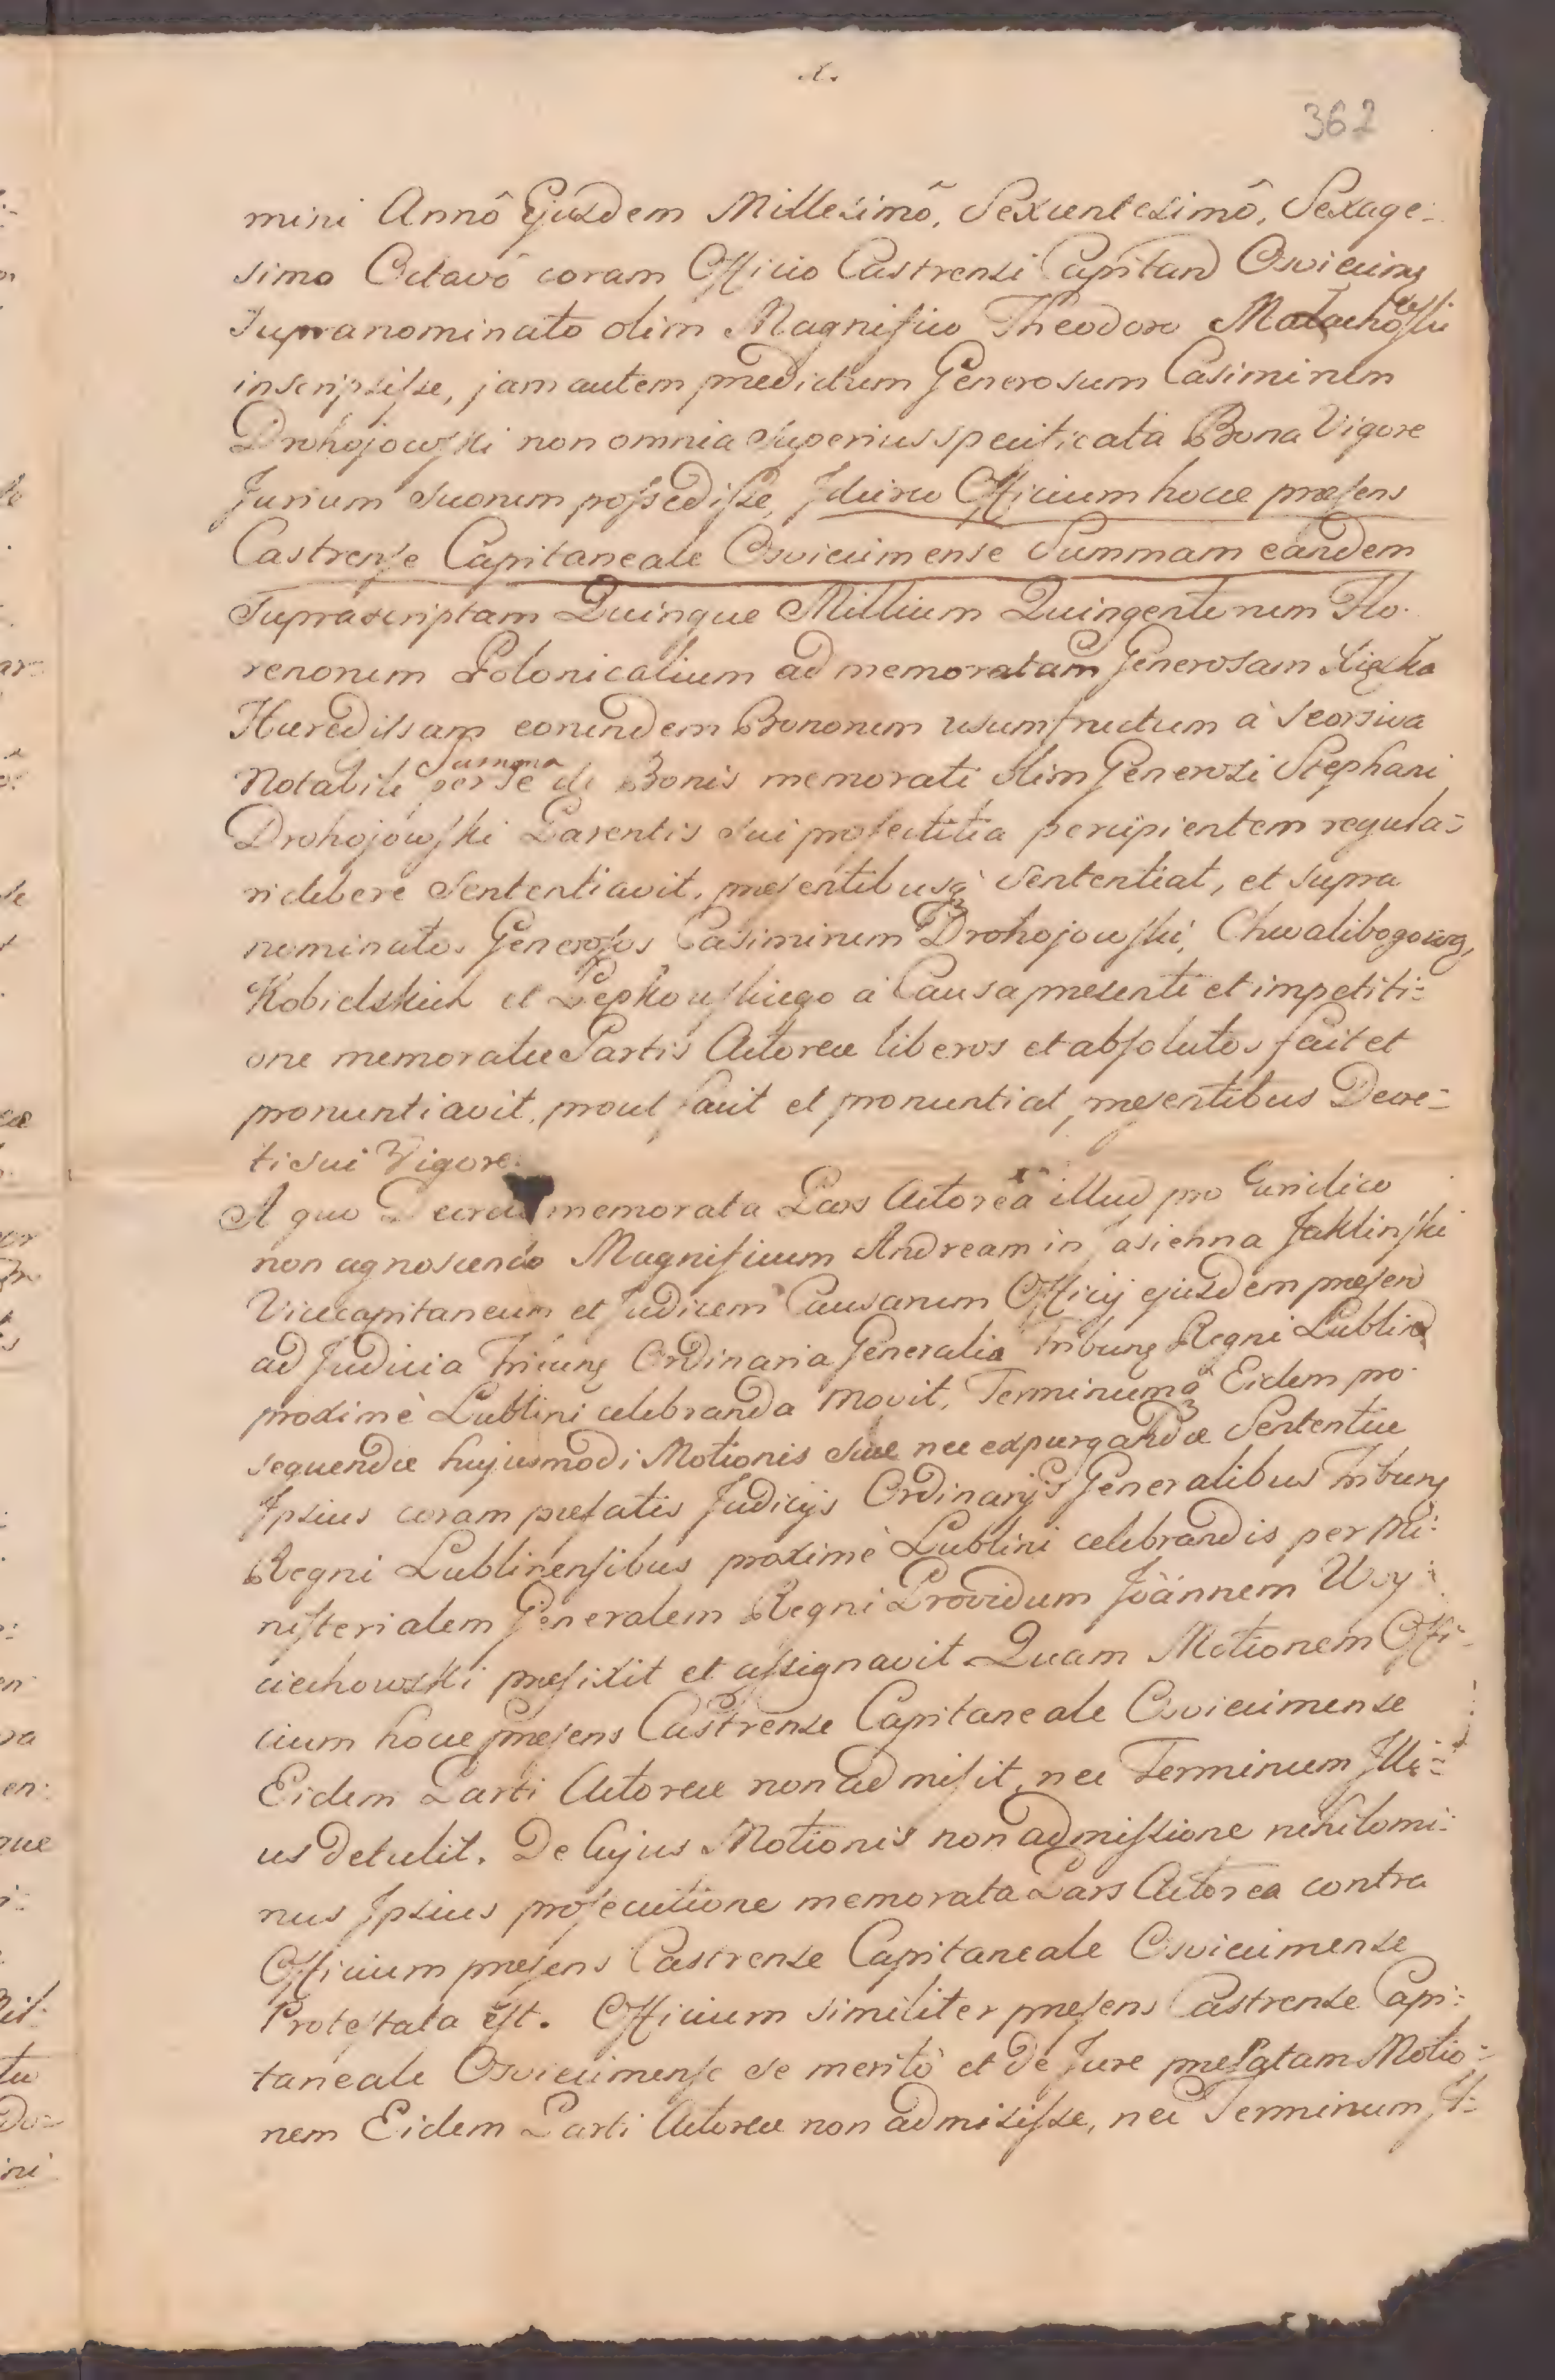 .x.
362
mini Annô Ejusdem Millesimõ, Sexcentesimô, Sexage:
simo Octavô coram Officio Castrensi Capitan Osviecims
supranominato olim Magnifico Theodoro Malachowski
inscripsisse, jam autem prædictum Generosum Casimirum
Drohojowski non omnia superius specificata Bona Vigore
Jurium suorum possedisse, Idcirco Officium hocce præsens
Castrense Capitaneale Osviecimense Summam eandem
Suprascriptam Quinque Millium Quingentorum Flo:
renorum Polonicalium ad memoratam Generosam
Hæredissam eorundem Bonorum usumfructum à seorsiva
Notabili per se Summa de Bonis memorati olim Generosi Stephani
Drohojowski Parentis sui profectitia percipientem regula:
ri debere Sententiavit, præsentibusq; sententiat, et supra
nominatos Generosos Casimirum Drohojowski, Chwalibogows,
Kobielskich et Pepkowskiego à Causa presenti et impetiti:
one memoratæ Partis Actoreæ liberos et absolutos fecit et
pronuntiavit, prout facit et pronuntiat, præsentibus Decre:
ti sui Vigore.
A quo Decreto memorata Pars Actorea illud pro Juridico
non agnoscendo Magnificum Andream in Jasienna Jaklinski
Vicecapitaneum et Judicem Causarum Officij ejusdem præsen
ad Judicia Ordinaria Generalia Tribung Regni Lublin
proximè Lublini celebranda movit, Terminumq; Eidem pro:
sequendæ hujusmodi Motionis suæ nec expurgandæ Sententiæ
Ipsius coram præfatis Judicijs Ordinarijs Generalibus Tribung
Regni Lublinensibus proximè Lublini celebrandis per Mi:
nisterialem Generalem Regni Providum Joannem Woy:
ciechowski præfixit et assignavit. Quam Motionem Offi:
cium hocce præsens Castrense Capitaneale Osviecimense
Eidem Parti Actoreæ non admisit, nec Terminum Illi:
us detulit. De Cujus Motionis non admissione nihilomi:
nus Ipsius prosecutione memorata Pars Actorea contra
Officium præsens Castrense Capitaneale Osviecimense
Protestata est. Officium similiter præsens Castrense Capi:
taneale Osviecimense se meritò et de Jure præfatam Motio:
nem Eidem Parti Actoreæ non admisisse, nec Terminum Il: